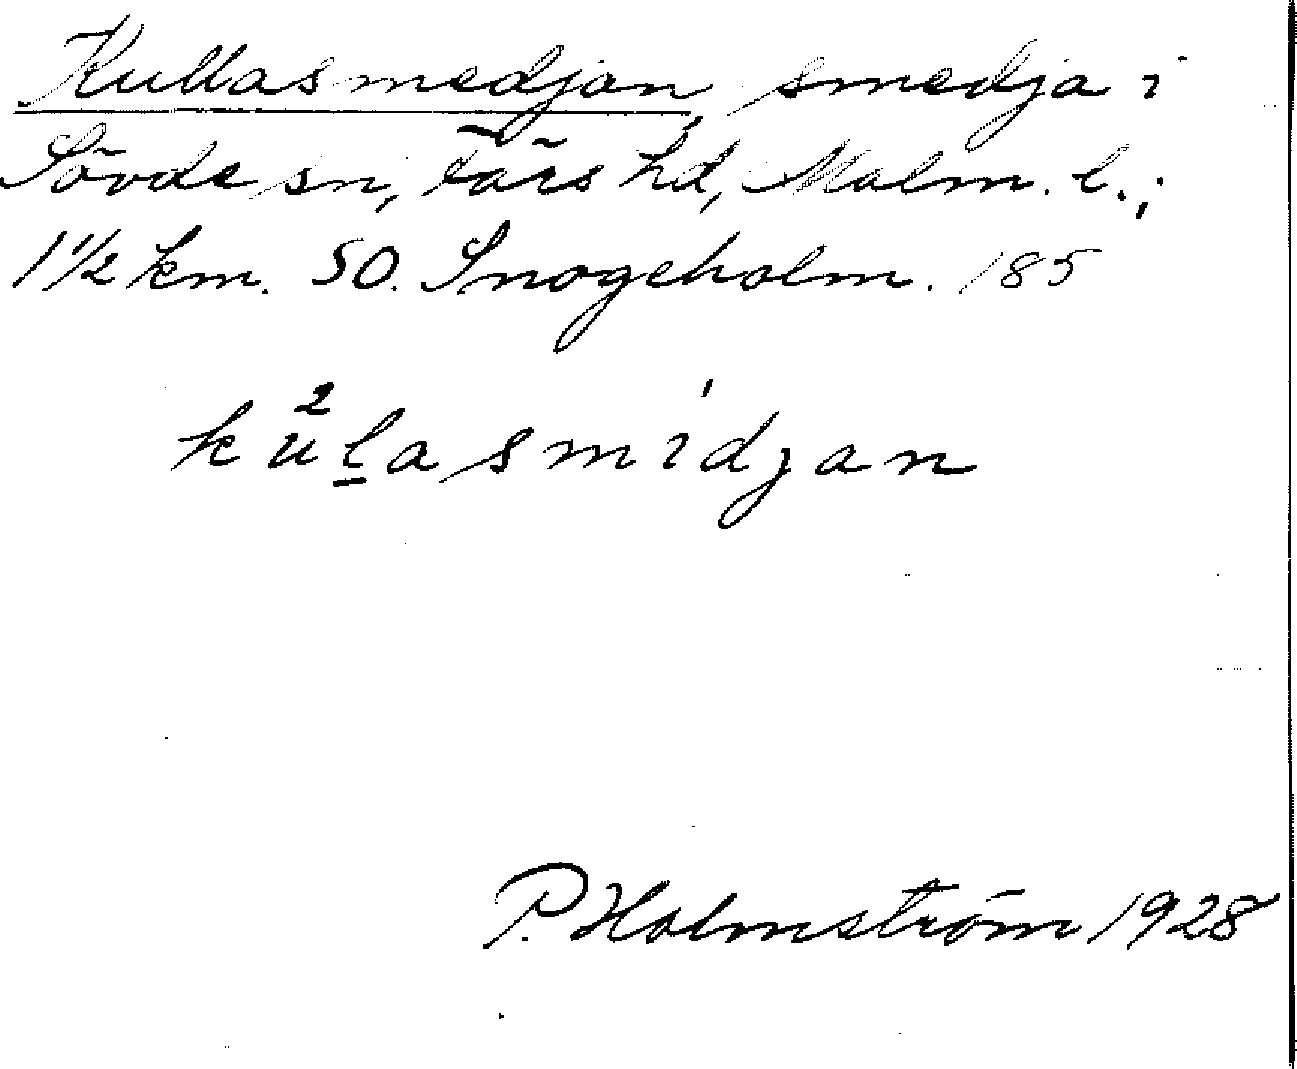 Kullasmedjan, smedja i
Sövde sn, Färs hd, Malm. l.;
1 1/2 km. SO. Snogeholm. 185
kü²l̠asmı̍djan
P. Holmström 1928